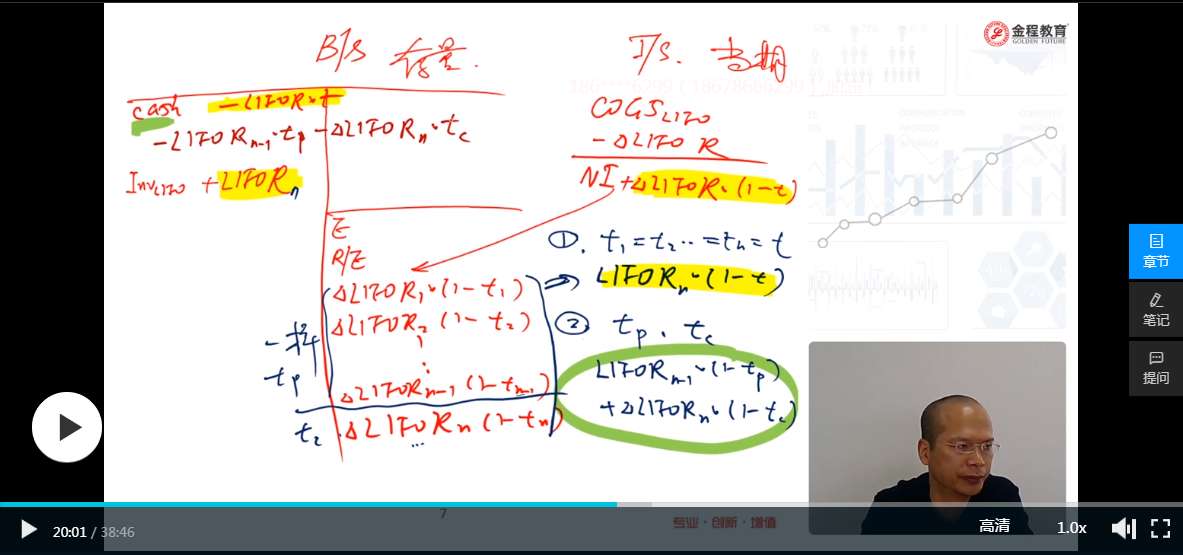 B/S 存量.
I/S. 当期
金程教育
GOLDEN FUTURE
cash -LIFOR×t
-LIFOR n-1·tp -ΔLIFOR n·tc
Inv LIFO +LIFOR n
COGS LIFO
-ΔLIFO R
NI+ΔLIFOR·(1-t)
E
R/E
ΔLIFOR1·(1-t1)
ΔLIFOR2(1-t2)
ΔLIFOR n-1(1-t n-1)
ΔLIFOR n(1-tn)
...
tp
①. t1=t2..=tn=t
LIFORn·(1-t)
② tp. tc
LIFOR n-1·(1-tp)
+ΔLIFORn·(1-tc)
章节
笔记
提问
7
专业·创新·增值
20:01 / 38:46
高清
1.0x